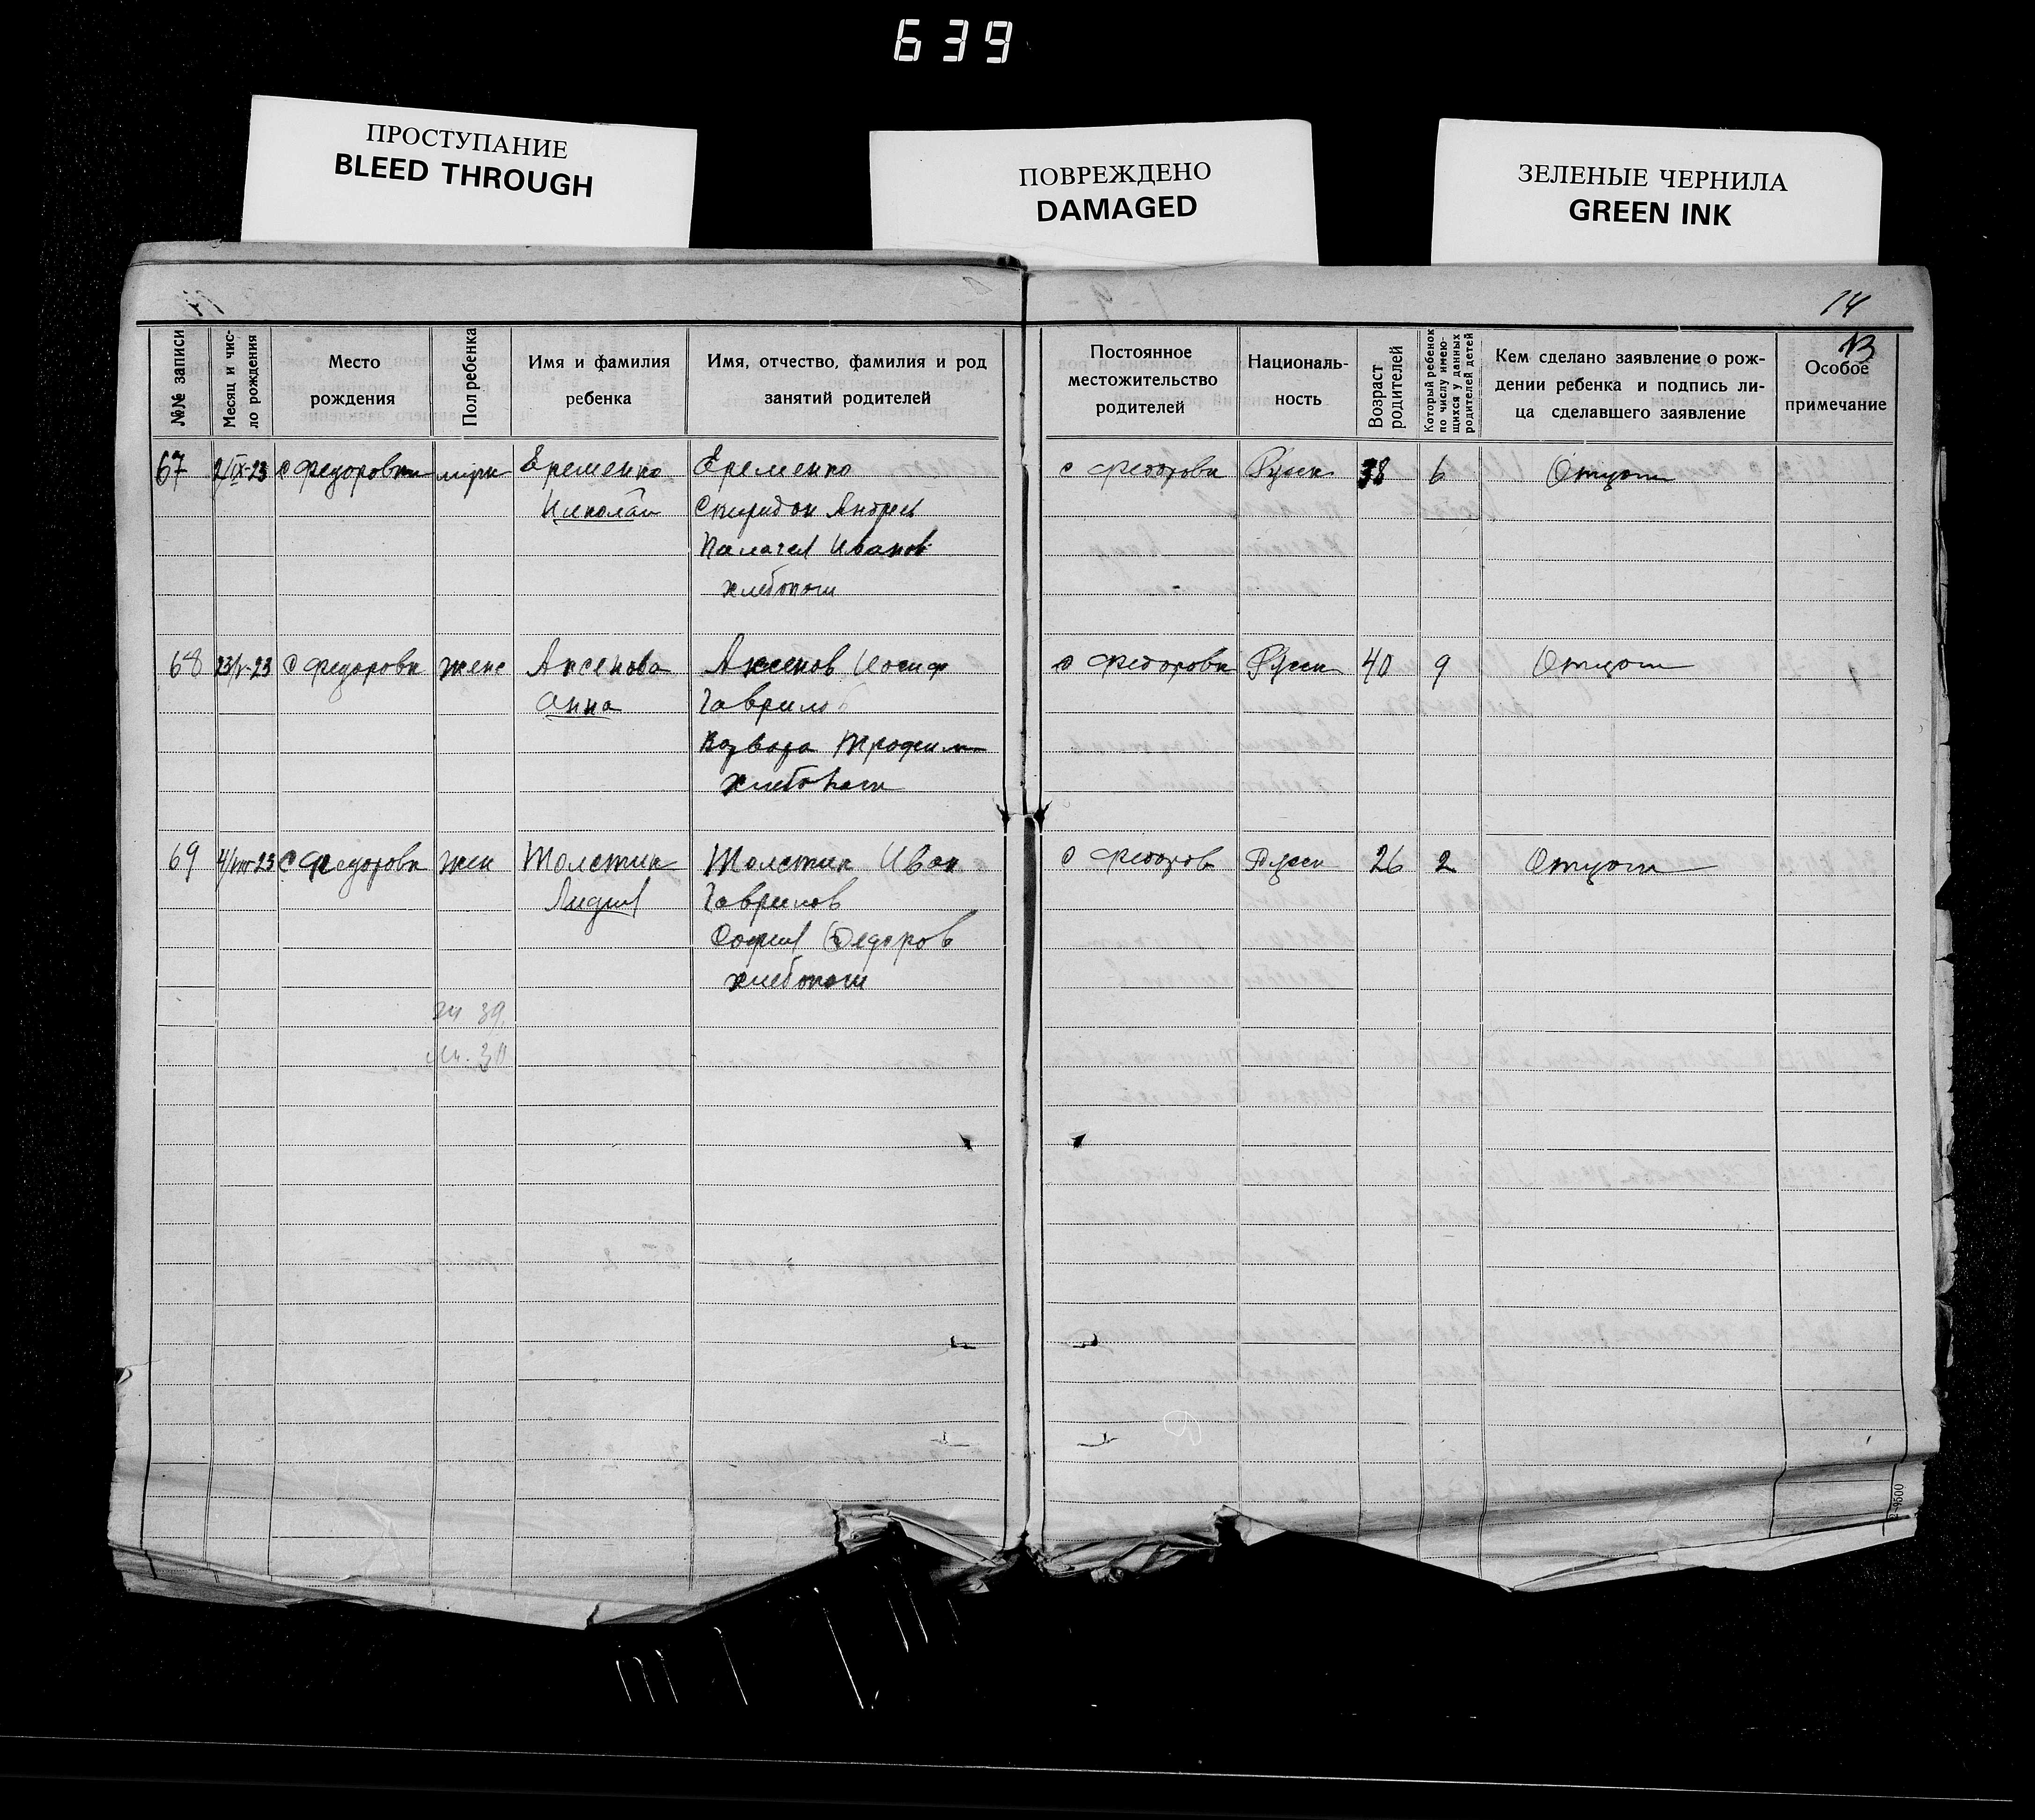 639
ПРОСТУПАНИЕ
BLEED THROUGH
ПОВРЕЖДЕНО
DAMAGED
ЗЕЛЕНЫЕ ЧЕРНИЛА
GREEN INK
14
13
№№ записи
Месяц и чис-
ло рождения
Место
рождения
Пол ребенка
Имя и фамилия
ребенка
Имя, отчество, фамилия и род
занятий родителей
Постоянное
местожительство
родителей
Националь-
ность
Возраст
родителей
Который ребенок
по числу имею-
щихся у данных
родителей детей
Кем сделано заявление о рож-
дении ребенка и подпись ли-
ца сделавшего заявление
Особое
примечание
67 2/IX-23 с Федоровка мужс Еременко Еременко с Федоровка Русск 38 6 Отцом
Николай Спиридон Андрев
Пелагея Иванов
хлебопаш
68 23/V-23 с Федоровк женс Аксенова Аксенов Иосиф с Федоровк Русск 40 9 Отцом
Анна Гаврилов
Трофим
хлебопаш
69 4/VIII-23 с Федоровк жен Толстик Толстик Иван с Федоров Русск 26 2 Отцом
Лидия Гаврилов
София Федоров
хлебопаш
39.
м. 30